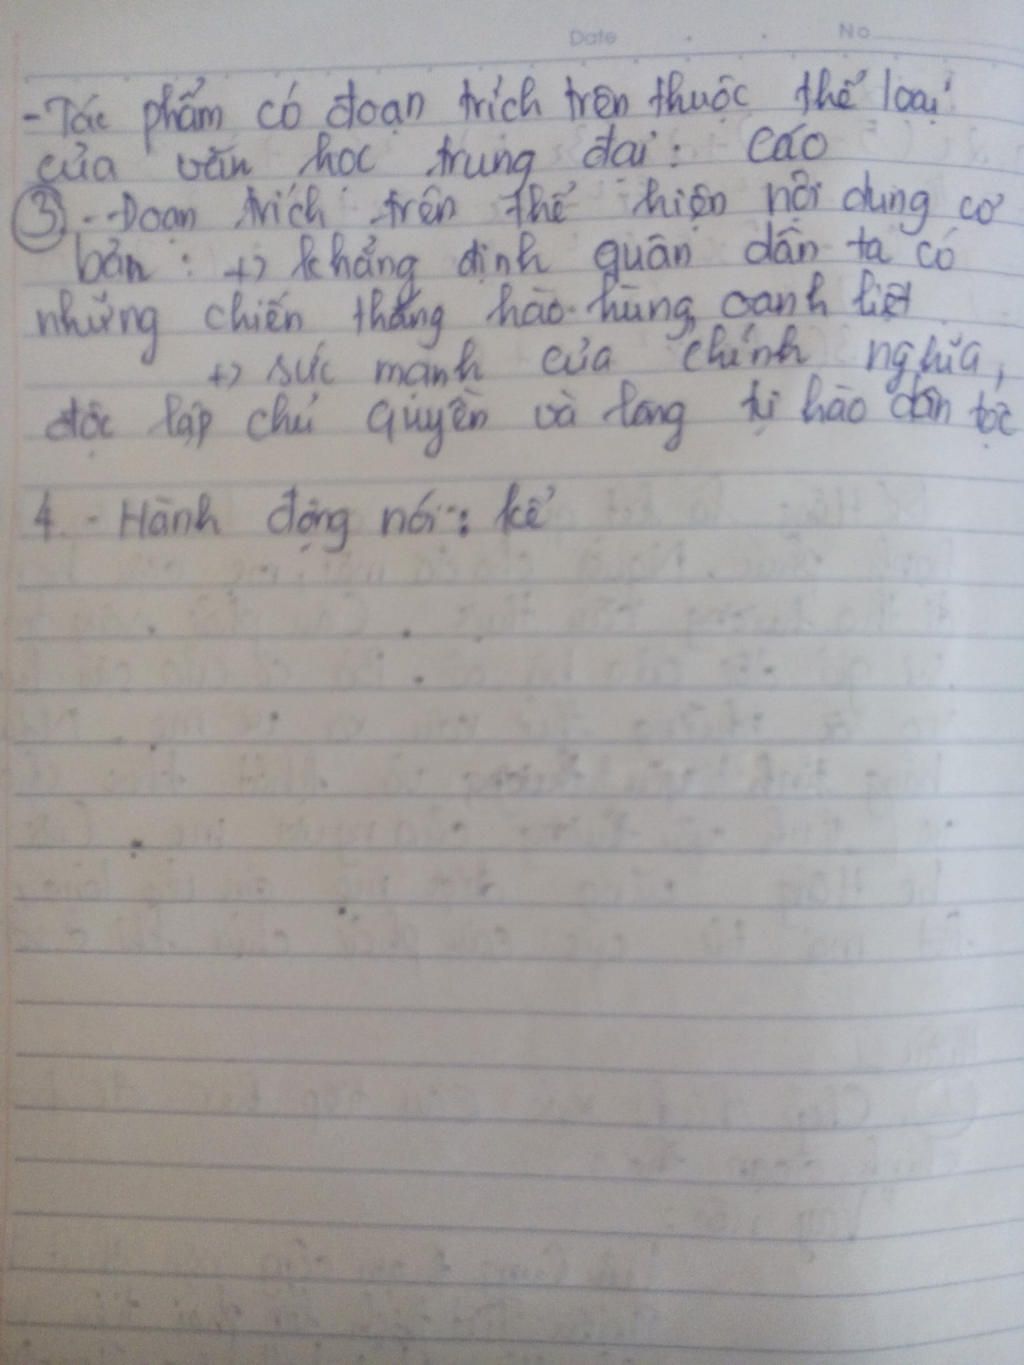 Date . . No
- Tác phẩm có đoạn trích trên thuộc thể loại
của văn học trung đại : Cáo
③ - Đoạn trích trên thể hiện nội dung cơ
bản : +) khẳng định quân dân ta có
những chiến thắng hào hùng, oanh liệt
+) sức mạnh của chính nghĩa,
độc lập chủ quyền và lòng tự hào dân tộc
4. - Hành động nói : kể